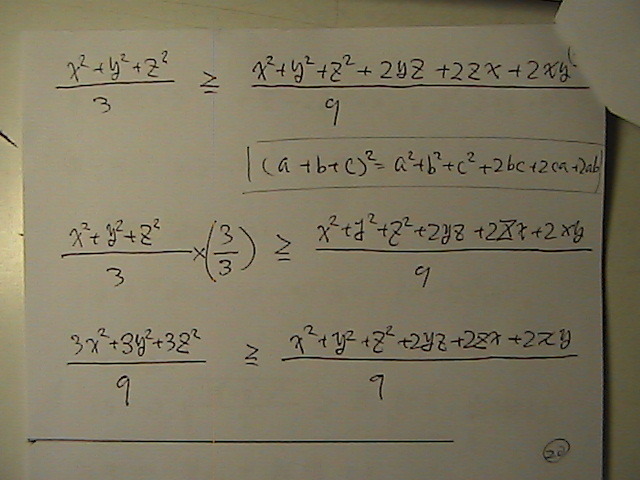 x²+y²+z²/3 ≥ x²+y²+z²+2yz+2zx+2xy/9
(a+b+c)²=a²+b²+c²+2bc+2ca+2ab
x²+y²+z²/3 ×(3/3) ≥ x²+y²+z²+2yz+2zx+2xy/9
3x²+3y²+3z²/9 ≥ x²+y²+z²+2yz+2zx+2xy/9
20